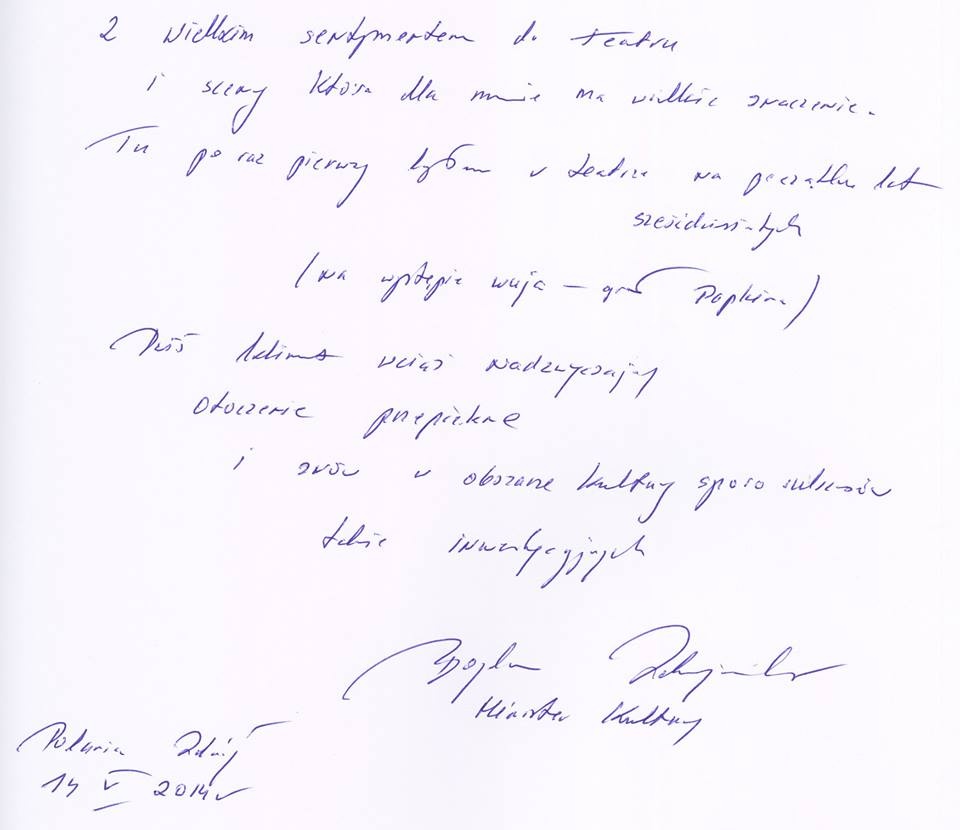 Z wielkim sentymentem do teatru
i sceny która dla mnie ma wielkie znaczenie.
Tu po raz pierwszy byłem w teatrze na początku lat
sześćdziesiątych
(na występie wuja – grał Papkina)
Dziś klimat wciąż nadzwyczajny
otoczenie przepiękne
i znów w obszarze kultury sporo sukcesów
także inwestycyjnych
Bogdan Zdrojewski
Minister Kultury
Polanica Zdrój
14 V 2014 r